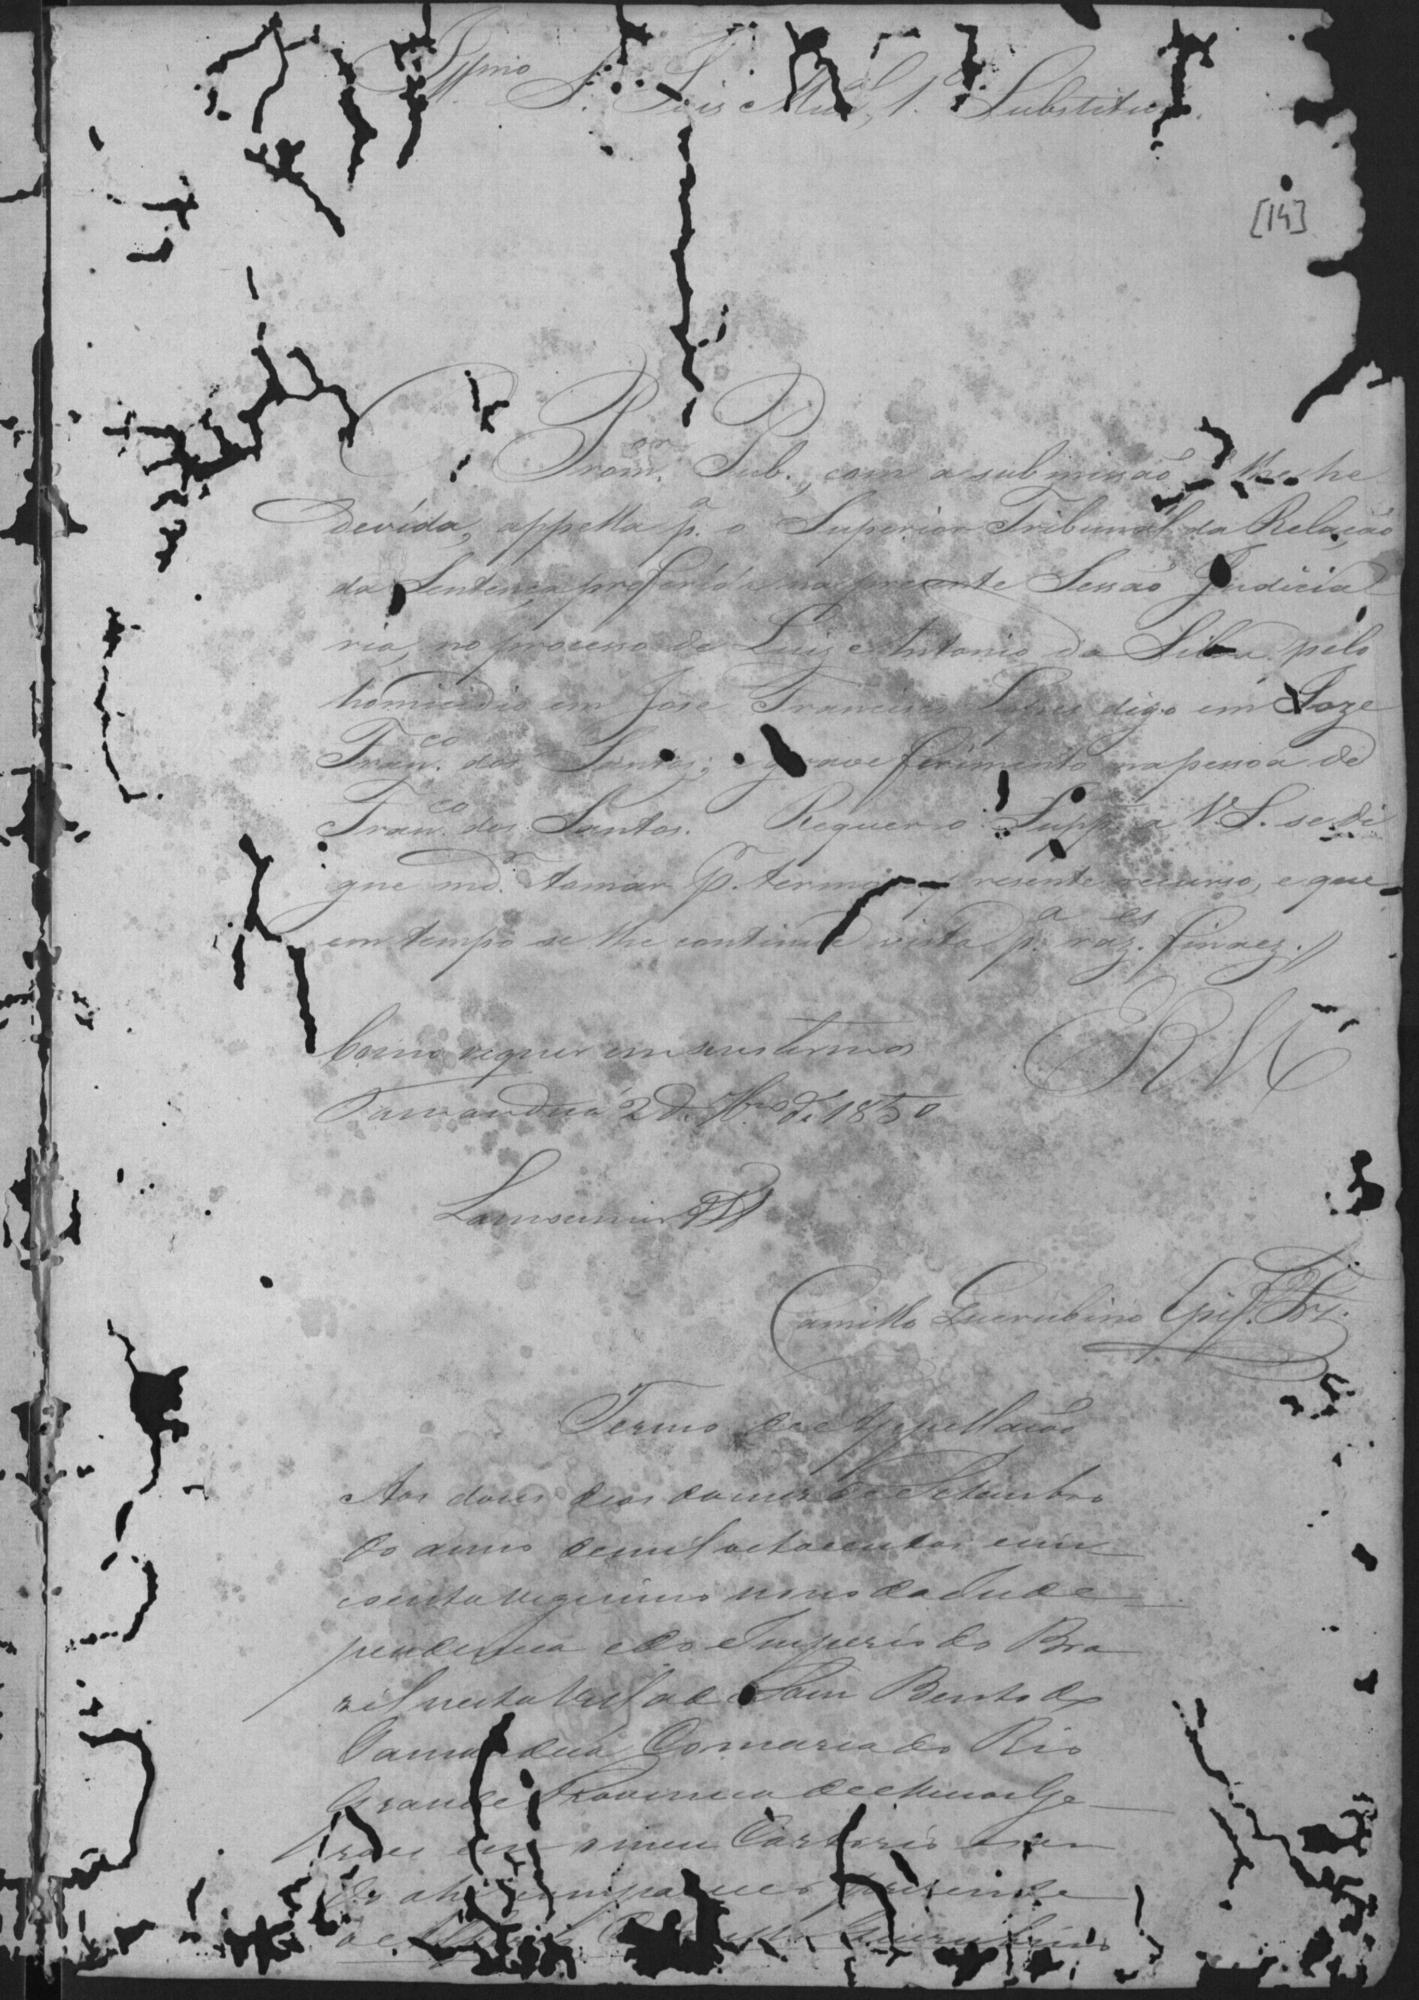 Illmo Sr. Juis Mual, 1.º Substituto.
[14]
O Prom.or Pub., com a submissão q. lhe he
devida, appella p.a o Superior Tribunal da Relação
da Sentença proferida na prezente Sessão Judicia
ria, no processo de Luiz Antonio da Silva pelo
homicidio em Jose Francisco Lopes digo em Joze
Fran.co dos Santos; e grave ferimento na pessoa de
Fran.co dos Santos. Requer o Supp.e a V.S. se di
gne md.r tomar p.r termo o presente recurso, e que
em tempo se lhe continue vista p.a raz.es finaez.
E R M
Como requer em seus termos
Tamandua 2 de 7br.o de 1850
Camillo Querubino
Termo de Appellação
Aos dous dias do mes de Setembro
do anno de mil oitocentos cinc
coenta vigesimo nono da Inde
pendencia e do Imperio do Bra
zil nesta Villa de Sam Bento do
Tamandua Comarca do Rio
Grande Provincia de Minas Ge
raes em o meu Cartorio sen
do ahi compareceo prezente
Camillo Querubino